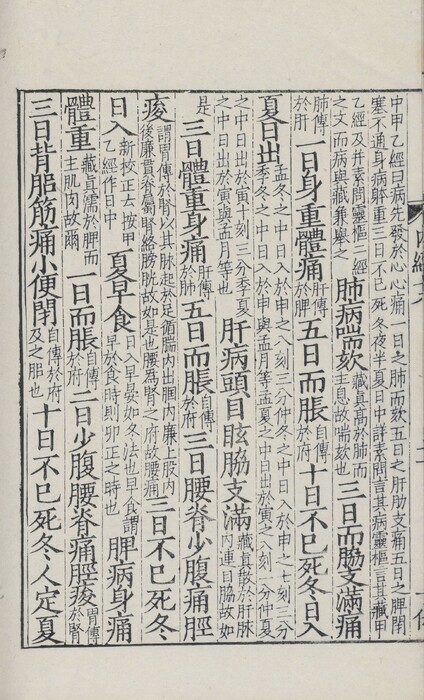 中甲乙經曰病先發於心心痛一日之肺而欬五日之肝肋支痛五日之脾閉
塞不通身病體重三日不已死冬夜半夏日中詳素問言其病靈樞言其藏甲
乙經及并素問靈樞二經之文而病與藏兼舉之肺病喘欬藏真高於肺而主息故喘欬也三日而脇支滿痛
肺傳於肝一日身重體痛肝傳於脾五日而脹自傳於府十日不已死冬日入
夏日出孟冬之中日入於申之八刻三分仲冬之中日入於申之七刻三分季冬之中日入於申與孟月等孟夏之中日出於寅之八刻一分仲夏
之中日出於寅十刻三分季夏之中日出於寅與孟月等也肝病頭目眩脇支滿藏真散於肝脉內連目脇故如
是三日體重身痛肝傳於脾五日而脹自傳於府三日腰脊少腹痛脛
痠謂胃傳於腎以其脉起於足循腨內出膕內廉上股內後廉貫脊屬腎絡膀胱故如是也腰為腎之府故腰痛三日不已死冬
日入新校正云按甲乙經作日中夏早食日入早晏如冬法也早食謂早於食時則卯正之時也脾病身痛
體重藏真濡於脾而主肌肉故爾一日而脹自傳於府二日少腹腰脊痛脛痠胃傳於腎
三日背𦛗筋痛小便閉自傳於府及之𦛗也十日不已死冬人定夏